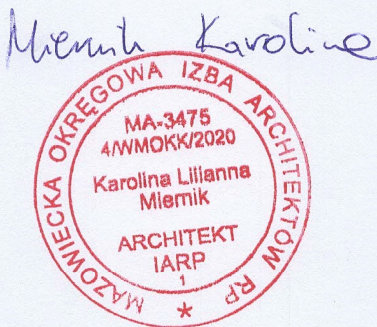 Miernik Karolina
MAZOWIECKA OKRĘGOWA IZBA ARCHITEKTÓW RP
MA-3475
4/WMOKK/2020
Karolina Lilianna
Miernik
ARCHITEKT
IARP
1